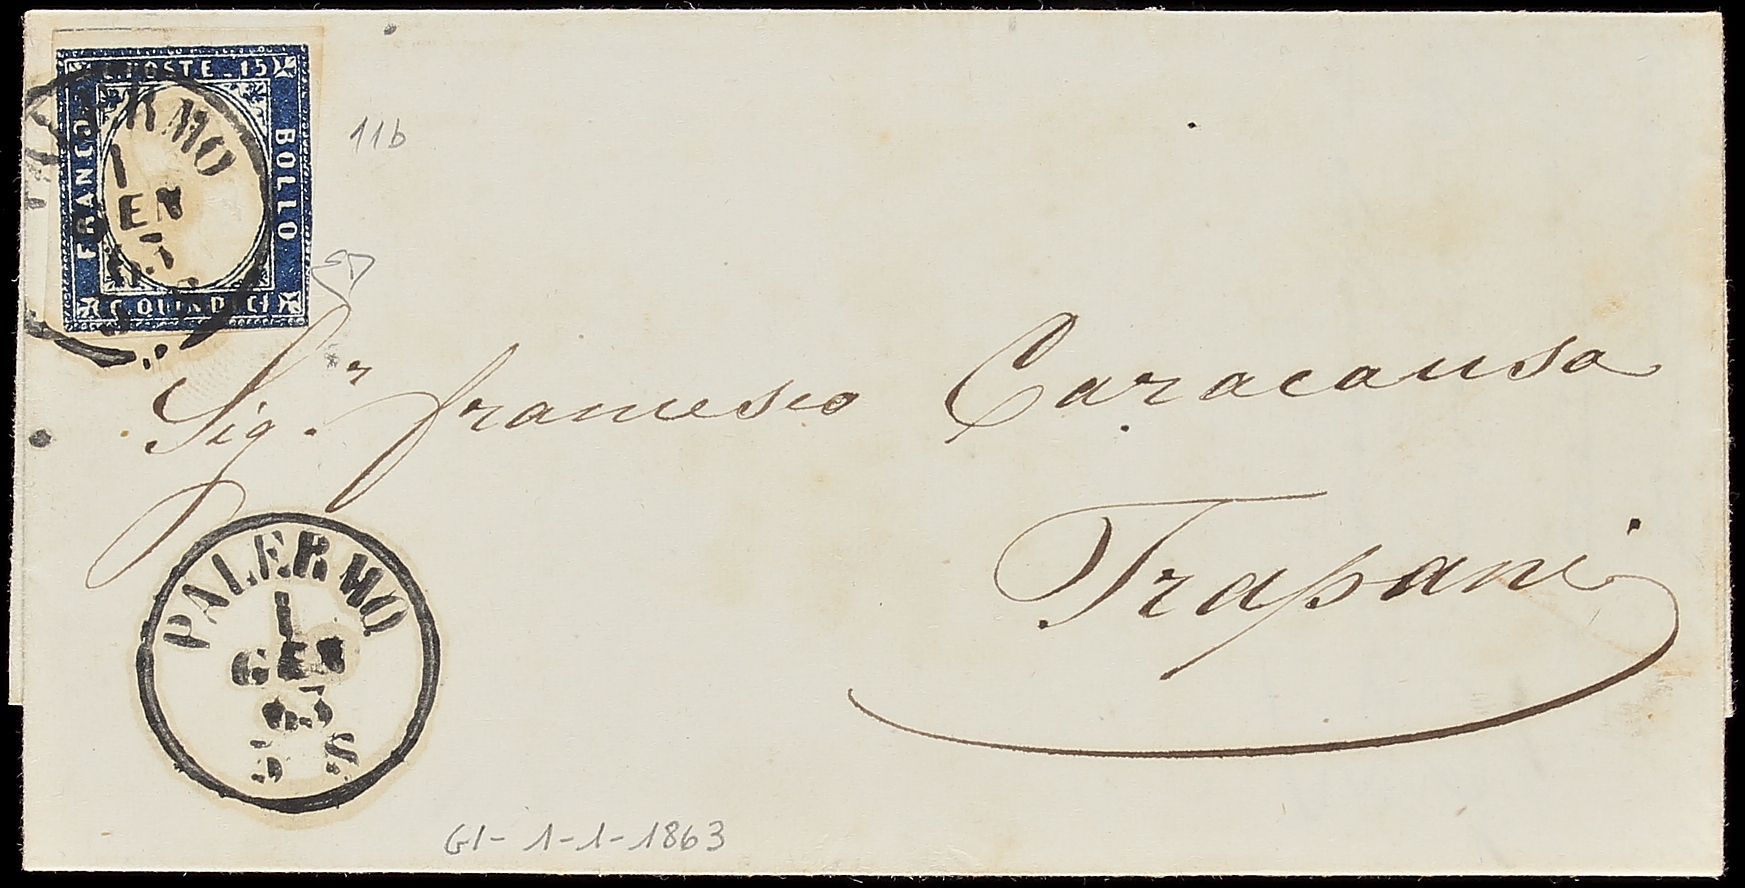 C. POSTE - 15
FRANCO
BOLLO
C. QUINDICI
PALERMO
1
GEN
63
5 S
11b
Sig.r
Sig.r francesco Caracausa
Trapani
PALERMO
1
GEN
63
5 S
G1- 1-1-1863